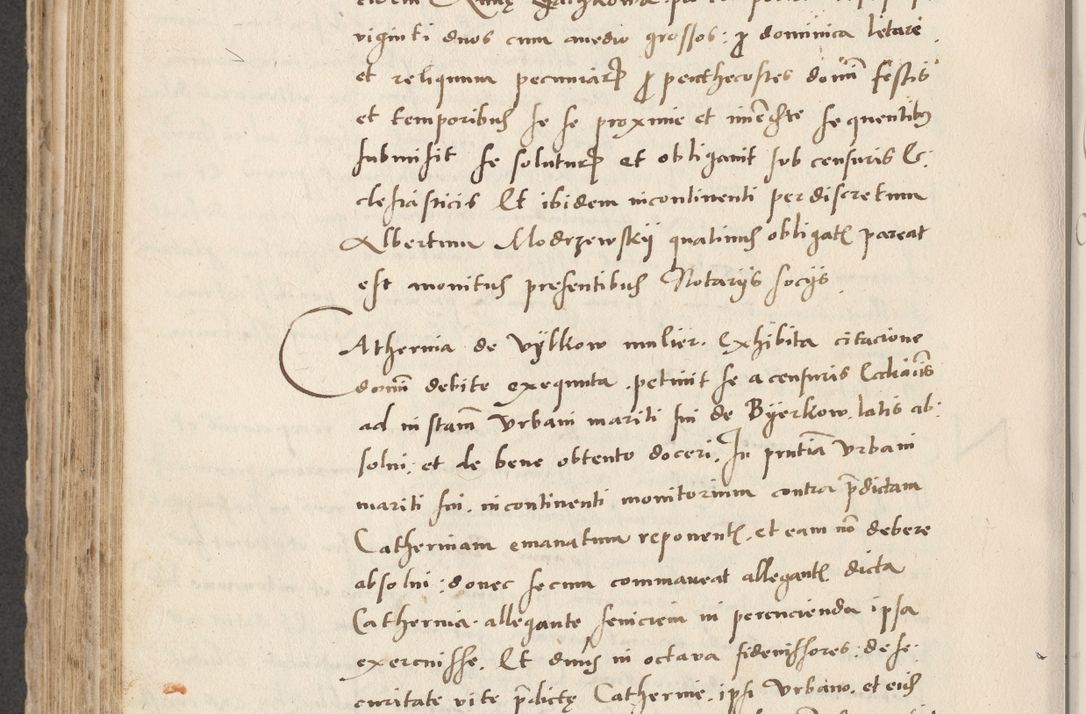 viginti duos cum medio grossos: ꝑ dominica letare
et reliquum pecuniarꝝ ꝑ penthecostes domī festis
et temporibus se se proxime et imēdte sequentibꝫ
submisit se soluturꝝ et obligauit sub censuris Ec:
clesiasticis Et ibidem incontinenti per discretum
Albertum Modrzewskij quatinus obligatꝭ pareat
est monitus presentibus Notarijs socijs
Atherina de Vylkow mulier. Exhibita citacione
domī debite exequuta. petiuit se a censuris Eccliasticis
ad instam̄ Vrbani mariti sui de Byerkow. latis ab:
solui: et de bene obtento doceri. In pn̄tia Vrbani
mariti sui. incontinenti monitorium contra p̄dictam
Catherinam emanatum reponentꝭ. et eam nō debere
absolui: donec secum commaneat allegantꝭ dicta
Catherina allegante seuiciem in percucienda ipsa
exercuisse. Et dn̄us in octaua fideiussores: de se:
curitate vite p̄dictę Catherine. ipsi Vrbano. et eid̄